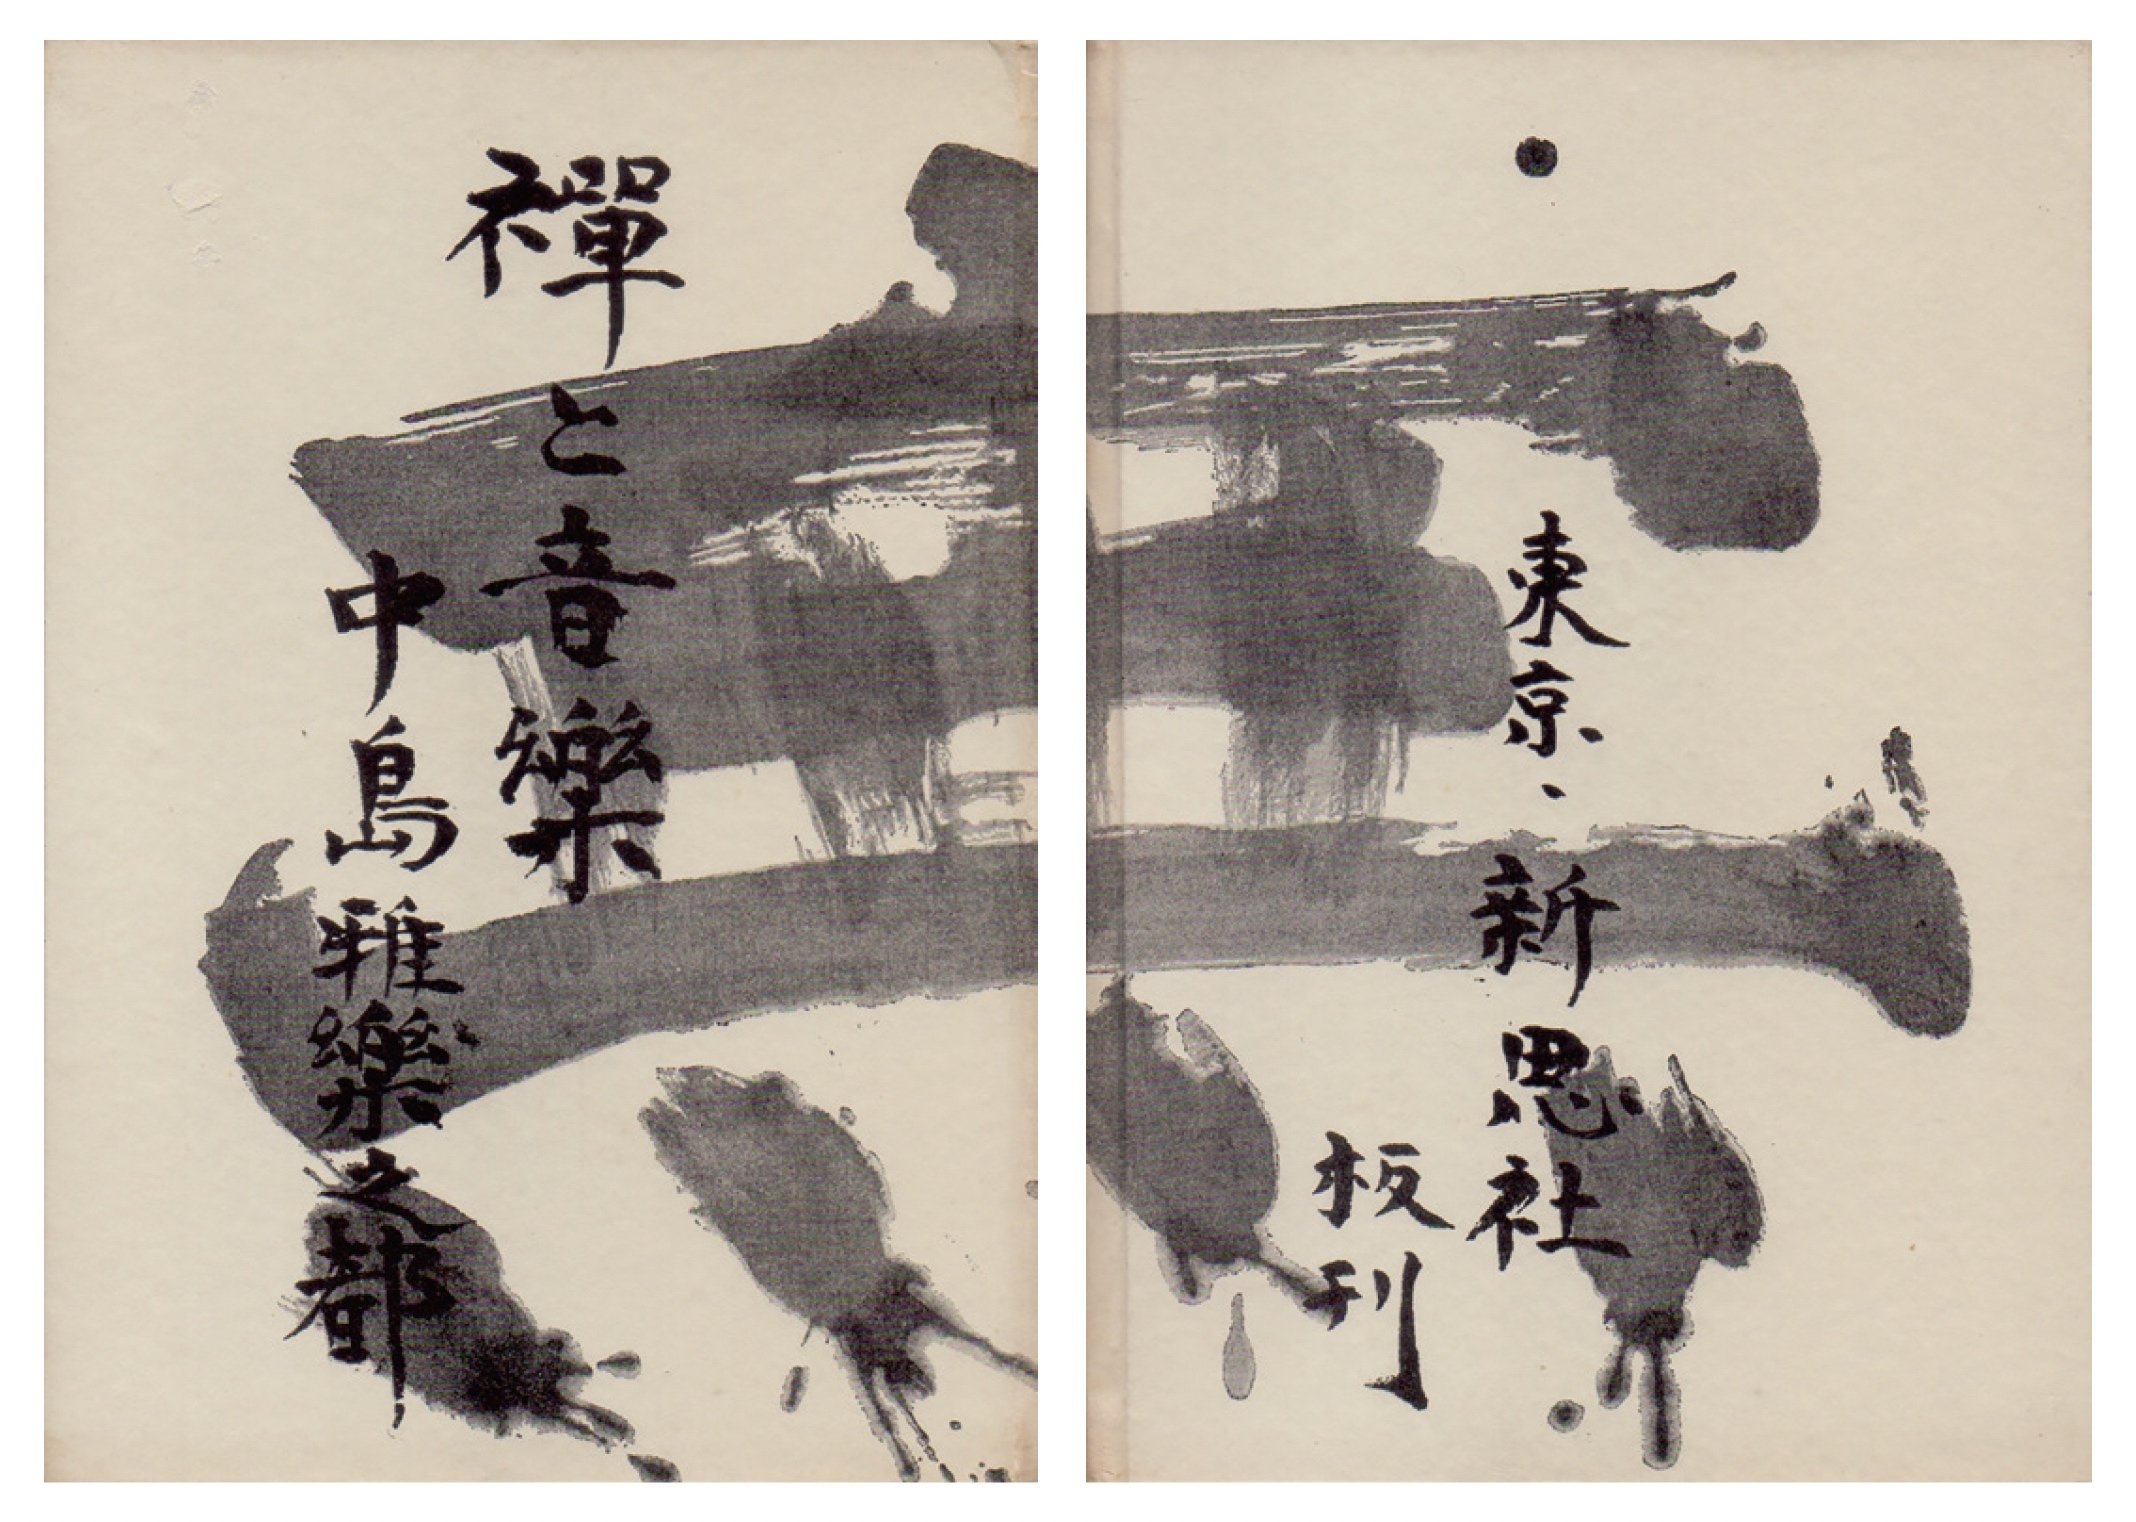 禪と音樂
中島雅樂之都
東京、新思社
板刊